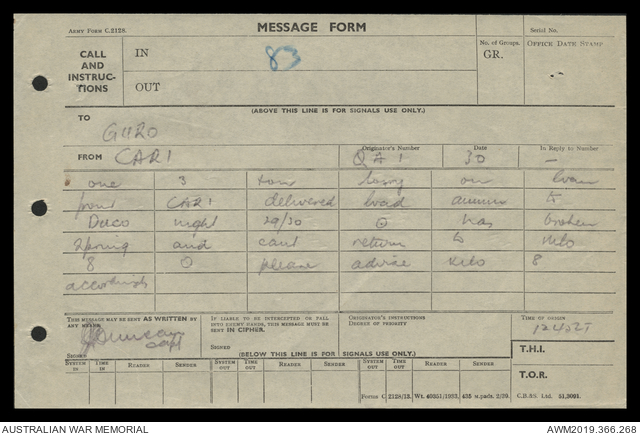 Army Form C.2128.
MESSAGE FORM
Serial No.
CALL AND INSTRUC-TIONS
IN
83
No. of Groups. GR.
OFFICE DATE STAMP
OUT
(ABOVE THIS LINE IS FOR SIGNALS USE ONLY.)
TO
GURO
FROM CARI
Originator's Number QA1
Date 30
In Reply to No. —
one 3 tons lorry on loan
from CARI delivered load ammn to
Duco night 29/30 ⊙ has broken
spring and cant return to Kilo
8 ⊙ please advise Kilo 8
accordingly
THIS MESSAGE MAY BE SENT AS WRITTEN BY ANY MEANS
IF LIABLE TO BE INTERCEPTED OR FALL INTO ENEMY HANDS, THIS MESSAGE MUST BE SENT IN CIPHER.
ORIGINATOR'S INSTRUCTIONS DEGREE OF PRIORITY
TIME OF ORIGIN
Duncan Capt
SIGNED
SIGNED
(BELOW THIS LINE IS FOR SIGNALS USE ONLY.)
T.H.I.
SYSTEM IN TIME IN READER SENDER SYSTEM OUT TIME OUT READER SENDER SYSTEM OUT TIME OUT READER SENDER
T.O.R.
C.B.SS. Ltd. 51,3001.
AUSTRALIAN WAR MEMORIAL
AWM2019.366.268